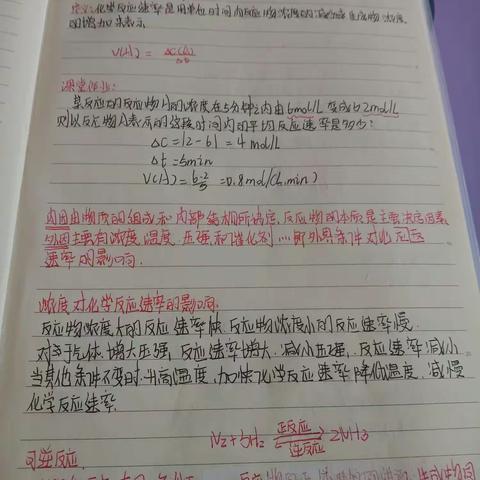 定义:化学反应速率是用单位时间内反应物浓度的减少或生成物浓度
的增加来表示
V(A) = Δc(A)/Δt
课堂作业:
某反应的反应物A的浓度在5分钟之内由6mol/L变成2mol/L
则以反应物A表示的这段时间内的平均反应速率是多少:
ΔC=|2-6|=4mol/L
Δt=5min
V(A)=6-2/5=0.8mol/(L·min)
内因由物质的组成和内部结构所决定,反应物的本质是主要决定因素
外因主要有浓度、温度、压强和催化剂....即外界条件对化
速率的影响.
浓度对化学反应速率的影响.
反应物浓度大的反应速率快.反应物浓度小的反应速率慢.
对于气体.增大压强,反应速率增大.减小压强,反应速率减小
当其他条件不变时.升高温度.加快化学反应速率.降低温度.减慢
化学反应速率.
N2+3H2 正反应 逆反应 2NH3
可逆反应.